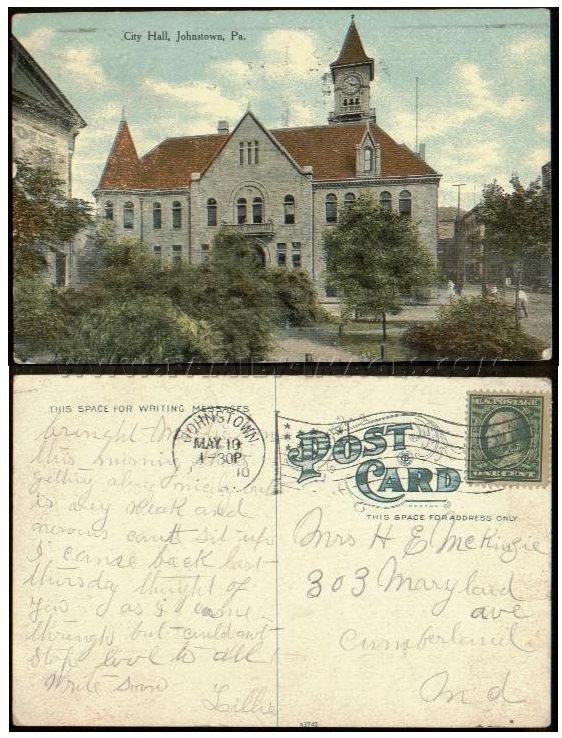 City Hall, Johnstown, Pa.
THIS SPACE FOR WRITING MESSAGES
brought
this morning
getting along nicely but
is very weak and
nervous can't sit up
I came back last
thursday thought of
you as I came
through but could not
stop love to all
Write Soon
Lillie
JOHNSTOWN
MAY 10
730P
10
POST
CARD
THIS SPACE FOR ADDRESS ONLY
U.S. POSTAGE
ONE CENT
Mrs H E McKinzie
303 Maryland
ave
Cumberland
Md
A3742